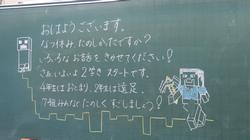 おはようございます。
なつ休み、たのしかったですか?
いろいろなお話をきかせてください!
さあ、いよいよ2学き スタートです。
4年生はおとまり、2年生は遠足。
7組みんなでたのしくすごしましょう!